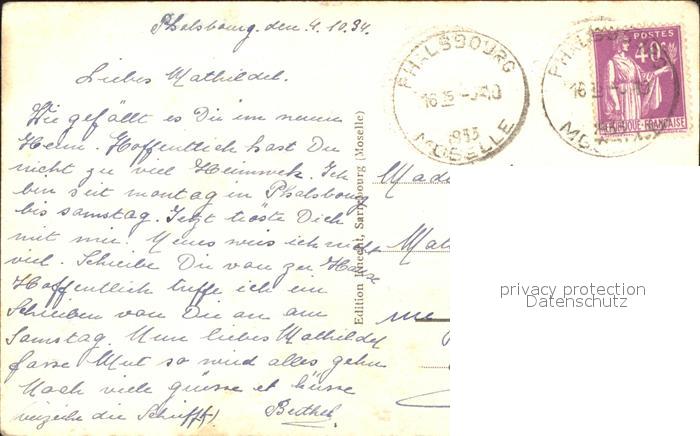 Phalsbourg, den 4.10.34.
Liebes Mathildel.
Wie gefällt es Dir im neuen
Heim. Hoffentlich hast Du
nicht zu viel Heimweh. Ich
bin seit montag in Phalsbourg
bis samstag. Jetzt tröste Dich
mit mir. Neues weis ich nicht
viel. Schreibe Dir von zu Hause
Hoffentlich treffe ich ein
Schreiben von Dir an am
Samstag. Nun liebes Mathildel
fasse Mut so wird alles gehn
Noch viele grüsse et küsse
verzeihe die Schrift
Edition Knecht, Sarrebourg (Moselle)
PHALSBOURG
16 15
MOSELLE
PHALSBOURG
16 15
POSTES
40c
RÉPUBLIQUE FRANÇAISE
privacy protection
Datenschutz